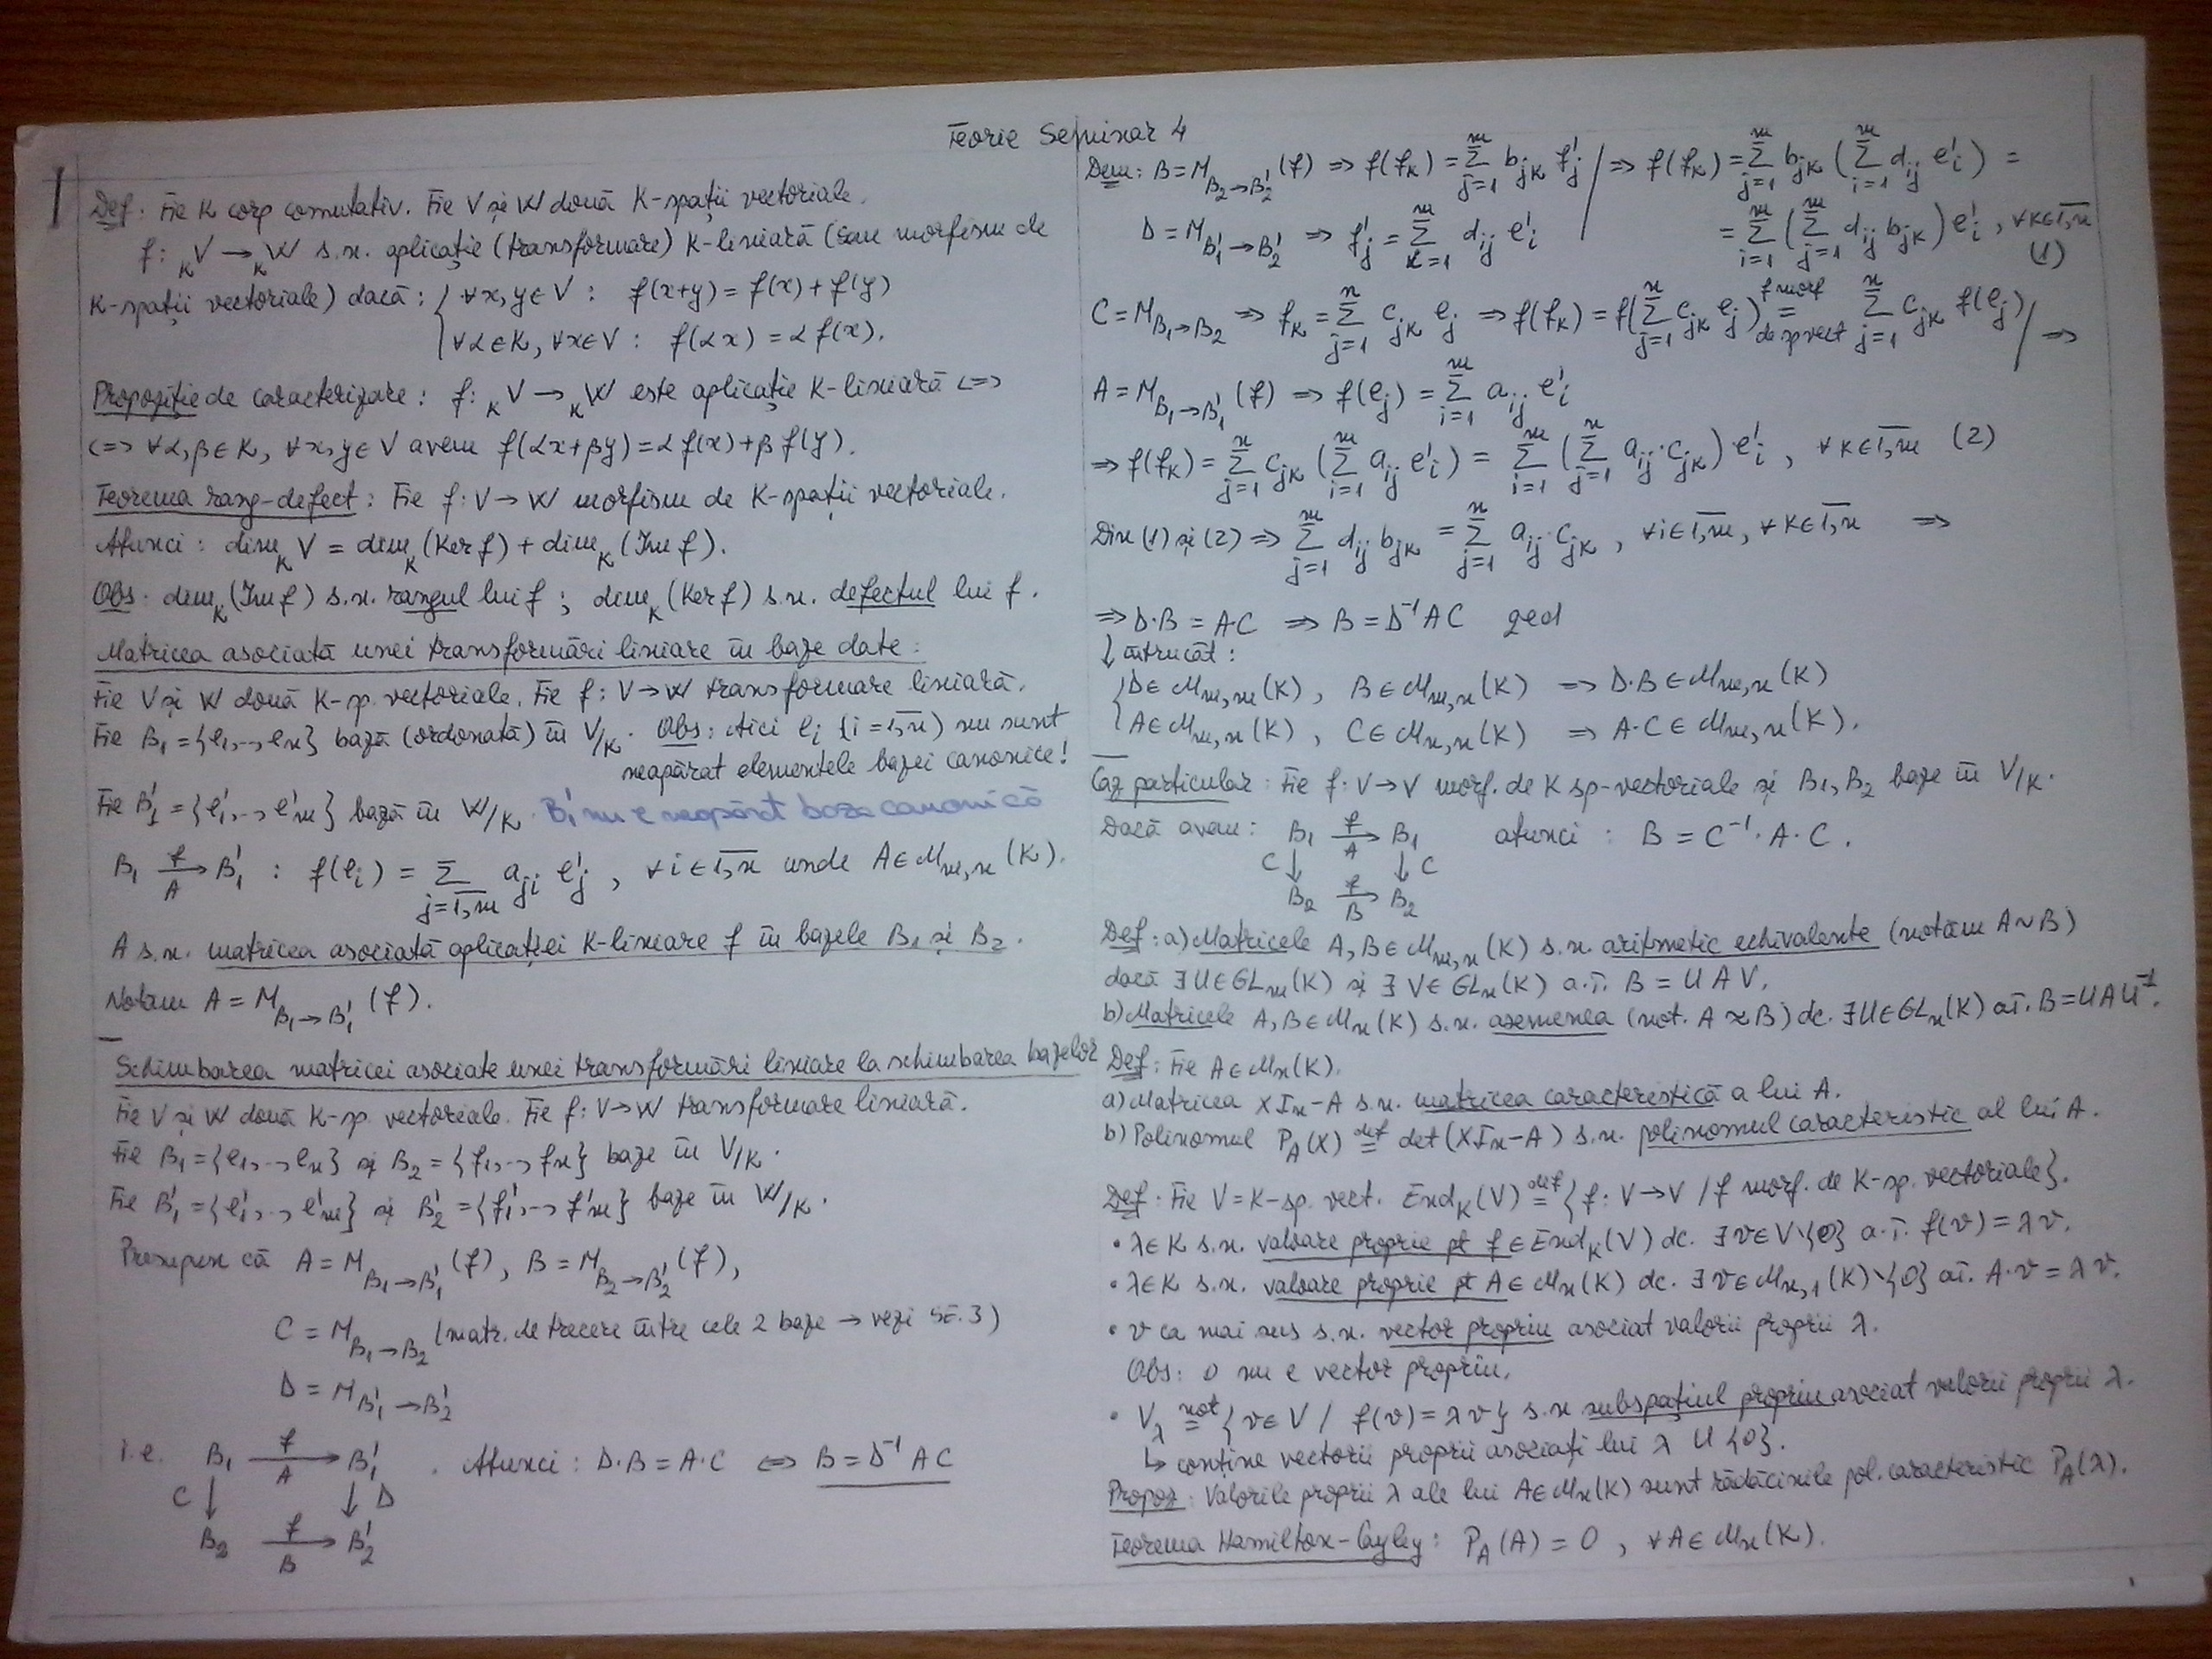 Teorie Seminar 4
1
Def: Fie K corp comutativ. Fie V și W două K-spații vectoriale.
f: ₖV → ₖW s.n. aplicație (transformare) K-liniară (sau morfism de
K-spații vectoriale) dacă: { ∀x,y∈V : f(x+y) = f(x)+f(y)
∀α∈K, ∀x∈V : f(αx) = αf(x).
Propoziție de caracterizare: f: ₖV → ₖW este aplicație K-liniară <=>
<=> ∀α,β∈K, ∀x,y∈V avem f(αx+βy)=αf(x)+βf(y).
Teorema rang-defect: Fie f:V→W morfism de K-spații vectoriale.
Atunci: dim_K V = dim_K (Ker f) + dim_K (Im f).
Obs: dim_K (Im f) s.n. rangul lui f ; dim_K (Ker f) s.n. defectul lui f.
Matricea asociată unei transformări liniare în baze date:
Fie V și W două K-sp. vectoriale. Fie f: V→W transformare liniară.
Fie B₁={e₁,..,eₙ} bază (ordonată) în V/K. Obs: Aici eᵢ (i=1,n) nu sunt
neapărat elementele bazei canonice!
Fie B₁'={e₁',..,e'ₘ} bază în W/K. B₁' nu e neapărat baza canonică
B₁ —f/A→ B₁' : f(eᵢ) = Σ_{j=1,m} a_{ji} e'_j , ∀i∈1,n unde A∈M_{m,n}(K).
A s.n. matricea asociată aplicației K-liniare f în bazele B₁ și B₂.
Notăm A = M_{B₁→B₁'}(f).
Schimbarea matricei asociate unei transformări liniare la schimbarea bazelor
Fie V și W două K-sp. vectoriale. Fie f: V→W transformare liniară.
Fie B₁={e₁,..,eₙ} și B₂={f₁,..,fₙ} baze în V/K.
Fie B₁'={e₁',..,e'ₘ} și B₂'={f₁',..,f'ₘ} baze în W/K.
Presupun că A = M_{B₁→B₁'}(f), B = M_{B₂→B₂'}(f),
C = M_{B₁→B₂} (matr. de trecere între cele 2 baze → vezi SE.3)
D = M_{B₁'→B₂'}
i.e. B₁ —f/A→ B₁' . Atunci: D·B = A·C <=> B = D⁻¹AC
C↓ ↓D
B₂ —f/B→ B₂'
Dem: B = M_{B₂→B₂'}(f) => f(f_k) = Σ_{j=1}^{m} b_{jk} f'_j / => f(f_k) = Σ_{j=1}^{m} b_{jk} (Σ_{i=1}^{m} d_{ij} e'_i) =
D = M_{B₁'→B₂'} => f'_j = Σ_{i=1}^{m} d_{ij} e'_i = Σ_{i=1}^{m} (Σ_{j=1}^{m} d_{ij} b_{jk}) e'_i , ∀k∈1,n
(1)
C = M_{B₁→B₂} => f_k = Σ_{j=1}^{n} c_{jk} e_j => f(f_k) = f(Σ_{j=1}^{n} c_{jk} e_j) = (f morf de sp vect) Σ_{j=1}^{n} c_{jk} f(e_j) / =>
A = M_{B₁→B₁'}(f) => f(e_j) = Σ_{i=1}^{m} a_{ij} e'_i
=> f(f_k) = Σ_{j=1}^{n} c_{jk} (Σ_{i=1}^{m} a_{ij} e'_i) = Σ_{i=1}^{m} (Σ_{j=1}^{n} a_{ij}·c_{jk}) e'_i , ∀k∈1,m (2)
Din (1) și (2) => Σ_{j=1}^{m} d_{ij} b_{jk} = Σ_{j=1}^{n} a_{ij}·c_{jk} , ∀i∈1,m, ∀k∈1,n =>
=> D·B = AC => B = D⁻¹AC qed
↓ întrucât:
{ D∈M_{m,m}(K) , B∈M_{m,n}(K) => D·B∈M_{m,n}(K)
A∈M_{m,n}(K) , C∈M_{n,n}(K) => A·C∈M_{m,n}(K).
Caz particular: Fie f: V→V morf. de K sp-vectoriale și B₁,B₂ baze în V/K.
Dacă avem: B₁ —f/A→ B₁ atunci : B = C⁻¹·A·C.
C↓ ↓C
B₂ —f/B→ B₂
Def: a) Matricele A,B∈M_{m,n}(K) s.n. aritmetic echivalente (notăm A~B)
dacă ∃U∈GLₘ(K) și ∃V∈GLₙ(K) a.î. B = UAV.
b) Matricele A,B∈Mₙ(K) s.n. asemenea (not. A≈B) dc. ∃U∈GLₙ(K) aî. B=UAU⁻¹.
Def: Fie A∈Mₙ(K).
a) Matricea XIₙ-A s.n. matricea caracteristică a lui A.
b) Polinomul P_A(X) def= det(XIₙ-A) s.n. polinomul caracteristic al lui A.
Def: Fie V = K-sp. vect. End_K(V) def= {f: V→V / f morf. de K-sp. vectoriale}.
• λ∈K s.n. valoare proprie pt f∈End_K(V) dc. ∃v∈V\{0} a.î. f(v)=λv.
• λ∈K s.n. valoare proprie pt A∈Mₙ(K) dc. ∃v∈M_{n,1}(K)\{0} aî. A·v=λv.
• v ca mai sus s.n. vector propriu asociat valorii proprii λ.
Obs: 0 nu e vector propriu.
• V_λ not= {v∈V / f(v)=λv} s.n subspațiul propriu asociat valorii proprii λ.
↳ conține vectorii proprii asociați lui λ ∪ {0}.
Propoz: Valorile proprii λ ale lui A∈Mₙ(K) sunt rădăcinile pol. caracteristic P_A(λ).
Teorema Hamilton-Cayley: P_A(A) = 0 , ∀A∈Mₙ(K).